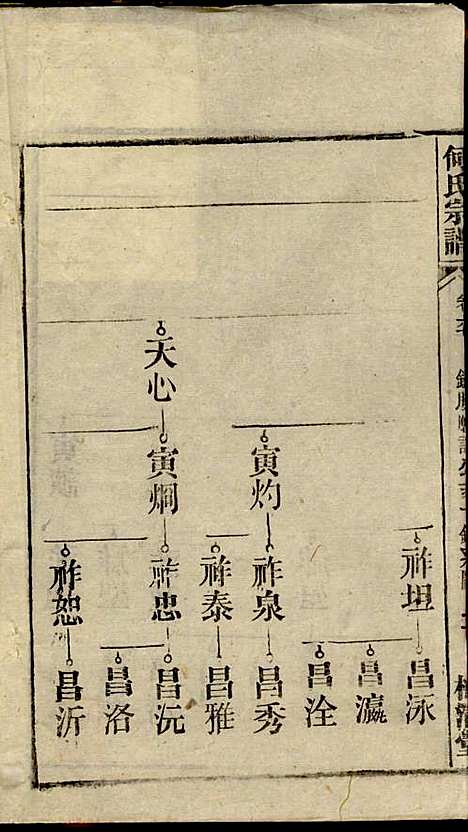 何氏宗譜
祚坦
昌泳
昌瀛
昌淦
寅灼
祚泉
昌秀
祚泰
昌雅
天心
寅炯
祚忠
昌沅
昌洛
祚恕
昌沂